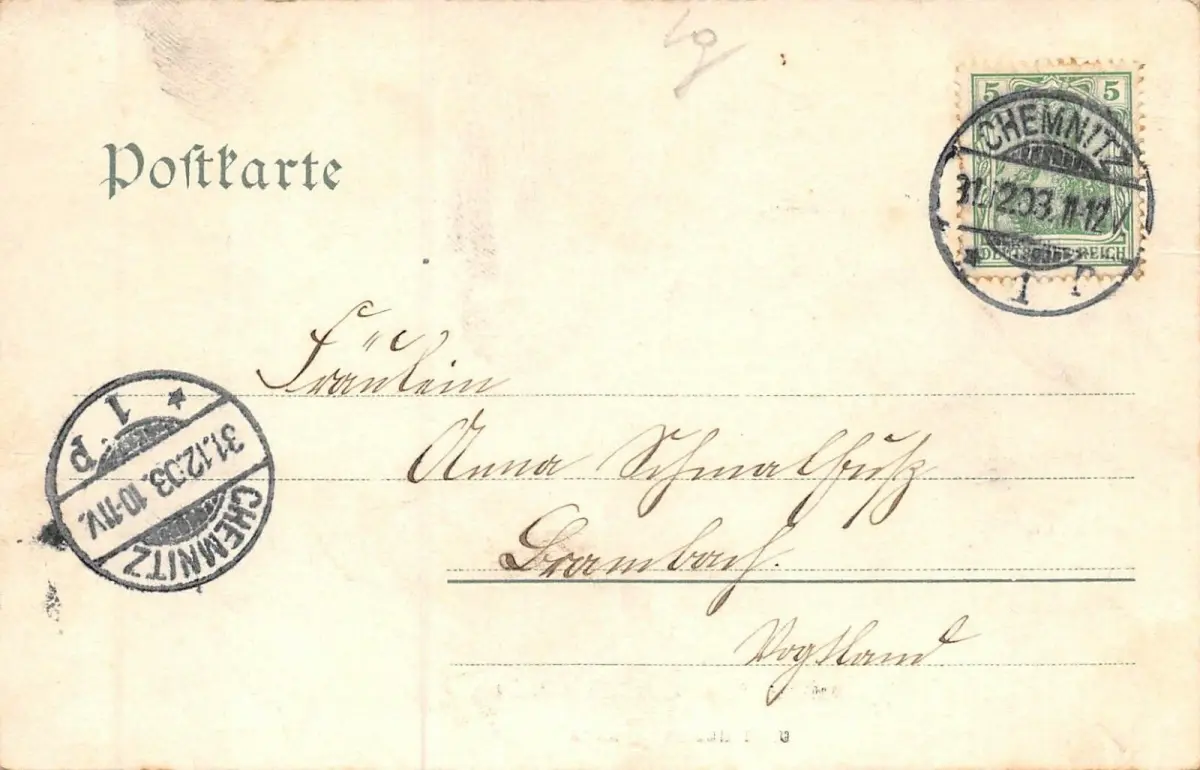 5 5
CHEMNITZ
31.12.03. 11-12 V.
DEUTSCHES REICH
* 1
Postkarte
Fräulein
Anna Schmalfuß
Brambach.
Vogtland
* 1 p
31.12.03. 10-11V.
CHEMNITZ